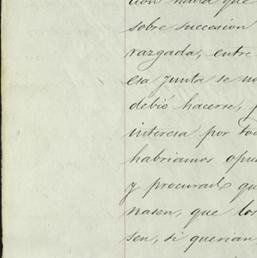 ción había que
sobre succesion
razgada, entre
esa junta se no
debió hacerse, p
interesa por Tod
habriamos opue
y procurado qu
nason, que los
sen, si querian